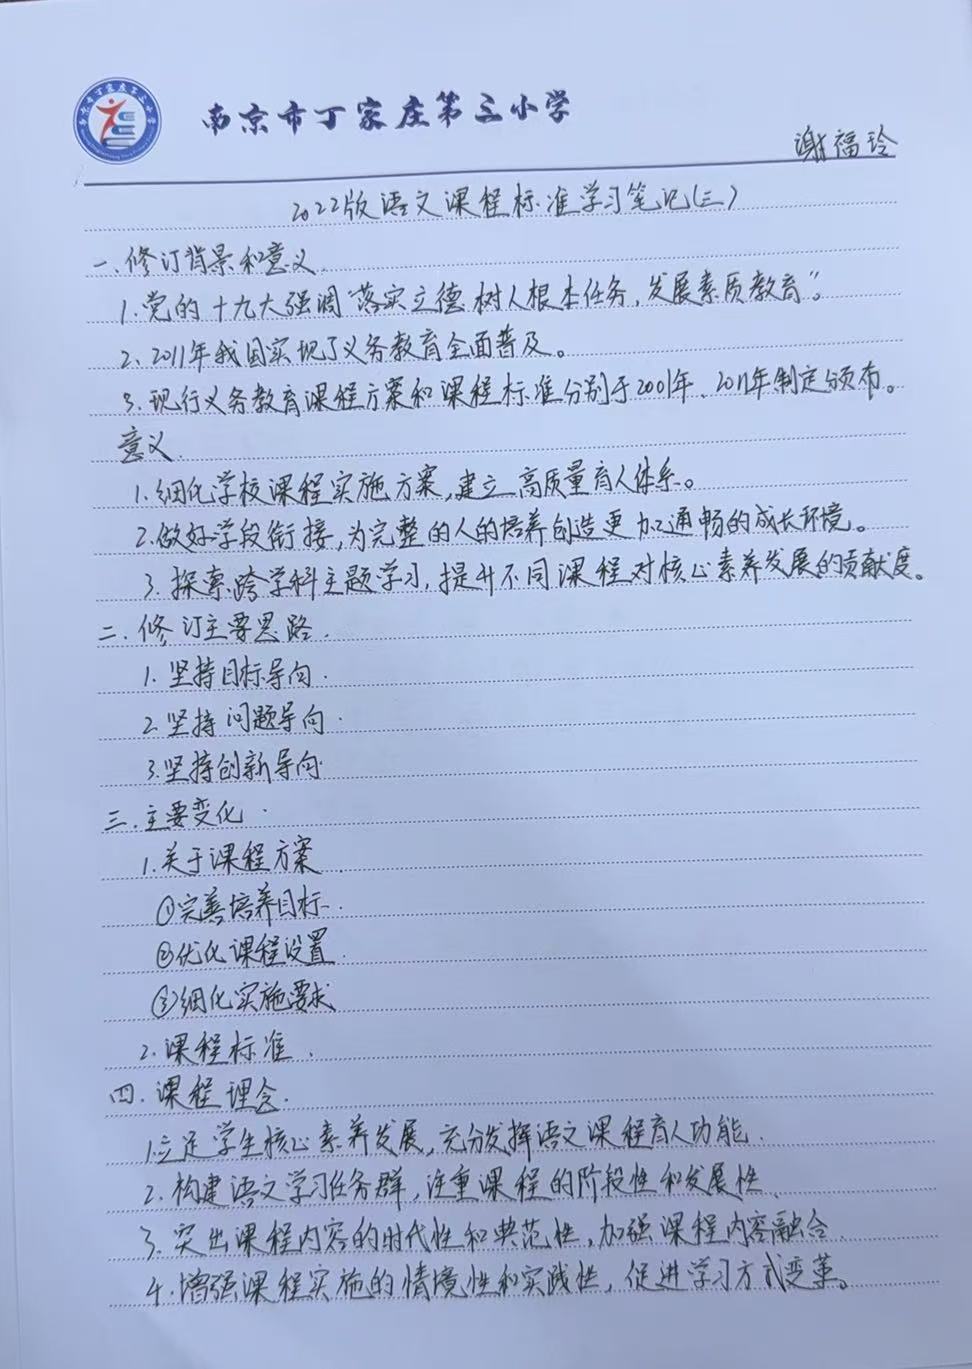 南京市丁家庄第三小学
谢福玲
2022版语文课程标准学习笔记(三)
一.修订背景和意义
1.党的十九大强调"落实立德树人根本任务,发展素质教育"。
2、2011年我国实现了义务教育全面普及。
3.现行义务教育课程方案和课程标准分别于2001年、2011年制定颁布。
意义
1.细化学校课程实施方案,建立高质量育人体系。
2.做好学段衔接,为完整的人的培养创造更加通畅的成长环境。
3.探索跨学科主题学习,提升不同课程对核心素养发展的贡献度。
二.修订主要思路.
1.坚持目标导向.
2.坚持问题导向.
3.坚持创新导向
三.主要变化.
1.关于课程方案
①完善培养目标.
②优化课程设置
③细化实施要求
2.课程标准.
四.课程理念.
1.立足学生核心素养发展,充分发挥语文课程育人功能.
2.构建语文学习任务群,注重课程的阶段性和发展性
3.突出课程内容的时代性和典范性,加强课程内容融合
4.增强课程实施的情境性和实践性,促进学习方式变革。